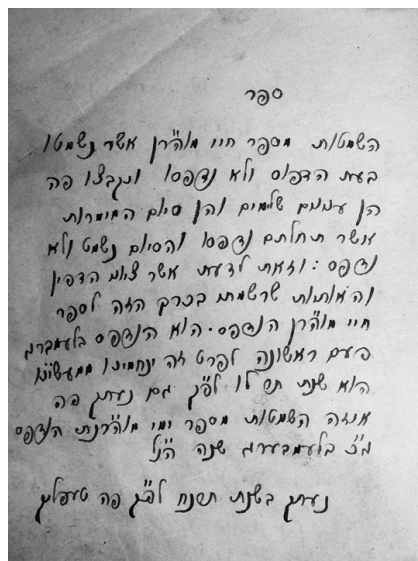 ספר
השמטות מספר חיי מוהר"ן אשר נשמטו
בעת הדפוס ולא נדפסו ונקבצו פה
הן ענינים שלימים והן סיום המימרות
אשר תחלתם נדפסו והסיום נשמט ולא
נדפס: וזאת לדעת אשר ציוני הדפין
והאותות שרשמתי בכרך הזה לספר
חיי מוהר"ן הנדפס. הוא הנדפס בלעמברג
פעם ראשונה לפרט זה ינחמינו ממעשינו
הוא שנת לפ"ק גם נעתק פה
איזה השמטות מספר ימי מוהרנ"ת הנדפס
ג"כ בלעמבערג שנה הנ"ל
נעתק בשנת לפ"ק פה טעפליק